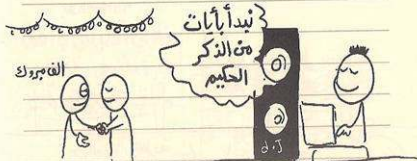 نبدأ بأيات
من الذكر
الحكيم
الف مبروك
d.J